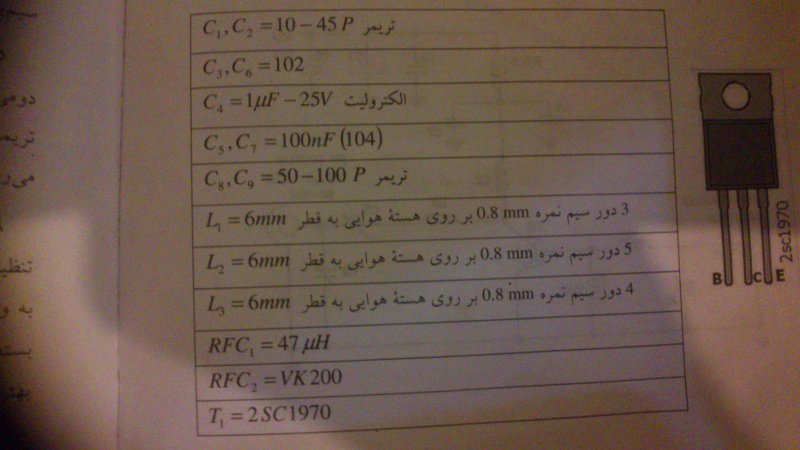 C₁, C₂ = 10 – 45 P تریمر
C₃, C₆ = 102
C₄ = 1μF – 25V الکترولیت
C₅, C₇ = 100nF (104)
C₈, C₉ = 50 – 100 P تریمر
3 دور سیم نمره 0.8 mm بر روی هستهٔ هوایی به قطر L₁ = 6mm
5 دور سیم نمره 0.8 mm بر روی هستهٔ هوایی به قطر L₂ = 6mm
4 دور سیم نمره 0.8 mm بر روی هستهٔ هوایی به قطر L₃ = 6mm
RFC₁ = 47 μH
RFC₂ = VK200
T₁ = 2SC1970
B C E
2sc1970
دومی
تریمر
تنظیم
به و